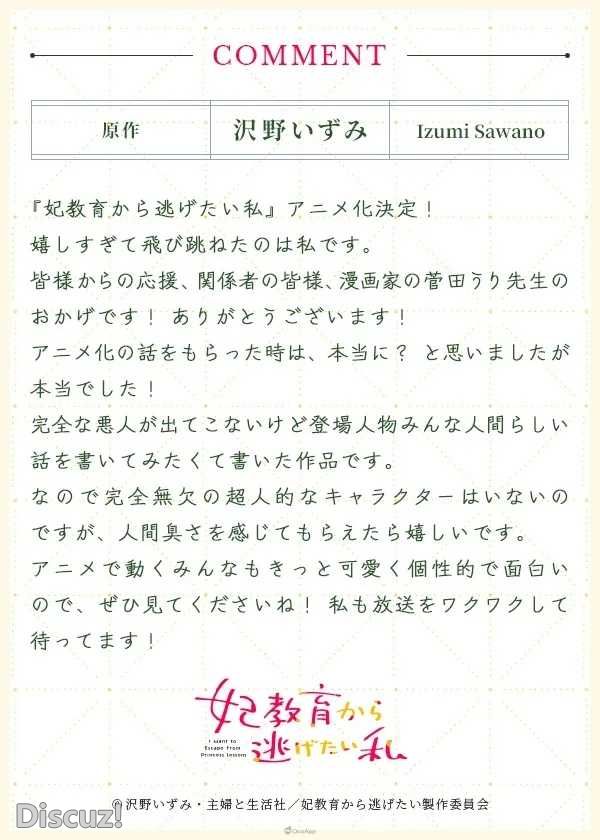 COMMENT
原作 沢野いずみ Izumi Sawano
『妃教育から逃げたい私』アニメ化決定！
嬉しすぎて飛び跳ねたのは私です。
皆様からの応援、関係者の皆様、漫画家の菅田うり先生の
おかげです！ ありがとうございます！
アニメ化の話をもらった時は、本当に？ と思いましたが
本当でした！
完全な悪人が出てこないけど登場人物みんな人間らしい
話を書いてみたくて書いた作品です。
なので完全無欠の超人的なキャラクターはいないの
ですが、人間臭さを感じてもらえたら嬉しいです。
アニメで動くみんなもきっと可愛く個性的で面白い
ので、ぜひ見てくださいね！ 私も放送をワクワクして
待ってます！
妃教育から
I Want to
Escape from
Princess Lessons
逃げたい私
©沢野いずみ・主婦と生活社／妃教育から逃げたい製作委員会
Discuz!